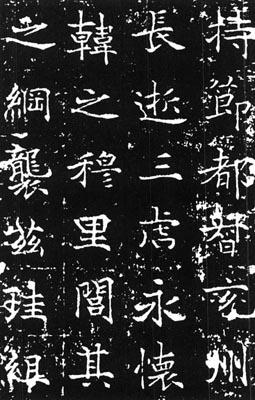 持節都督兗州
長逝三虎永懷
韓之穆里閭其
之綱襲茲珪組